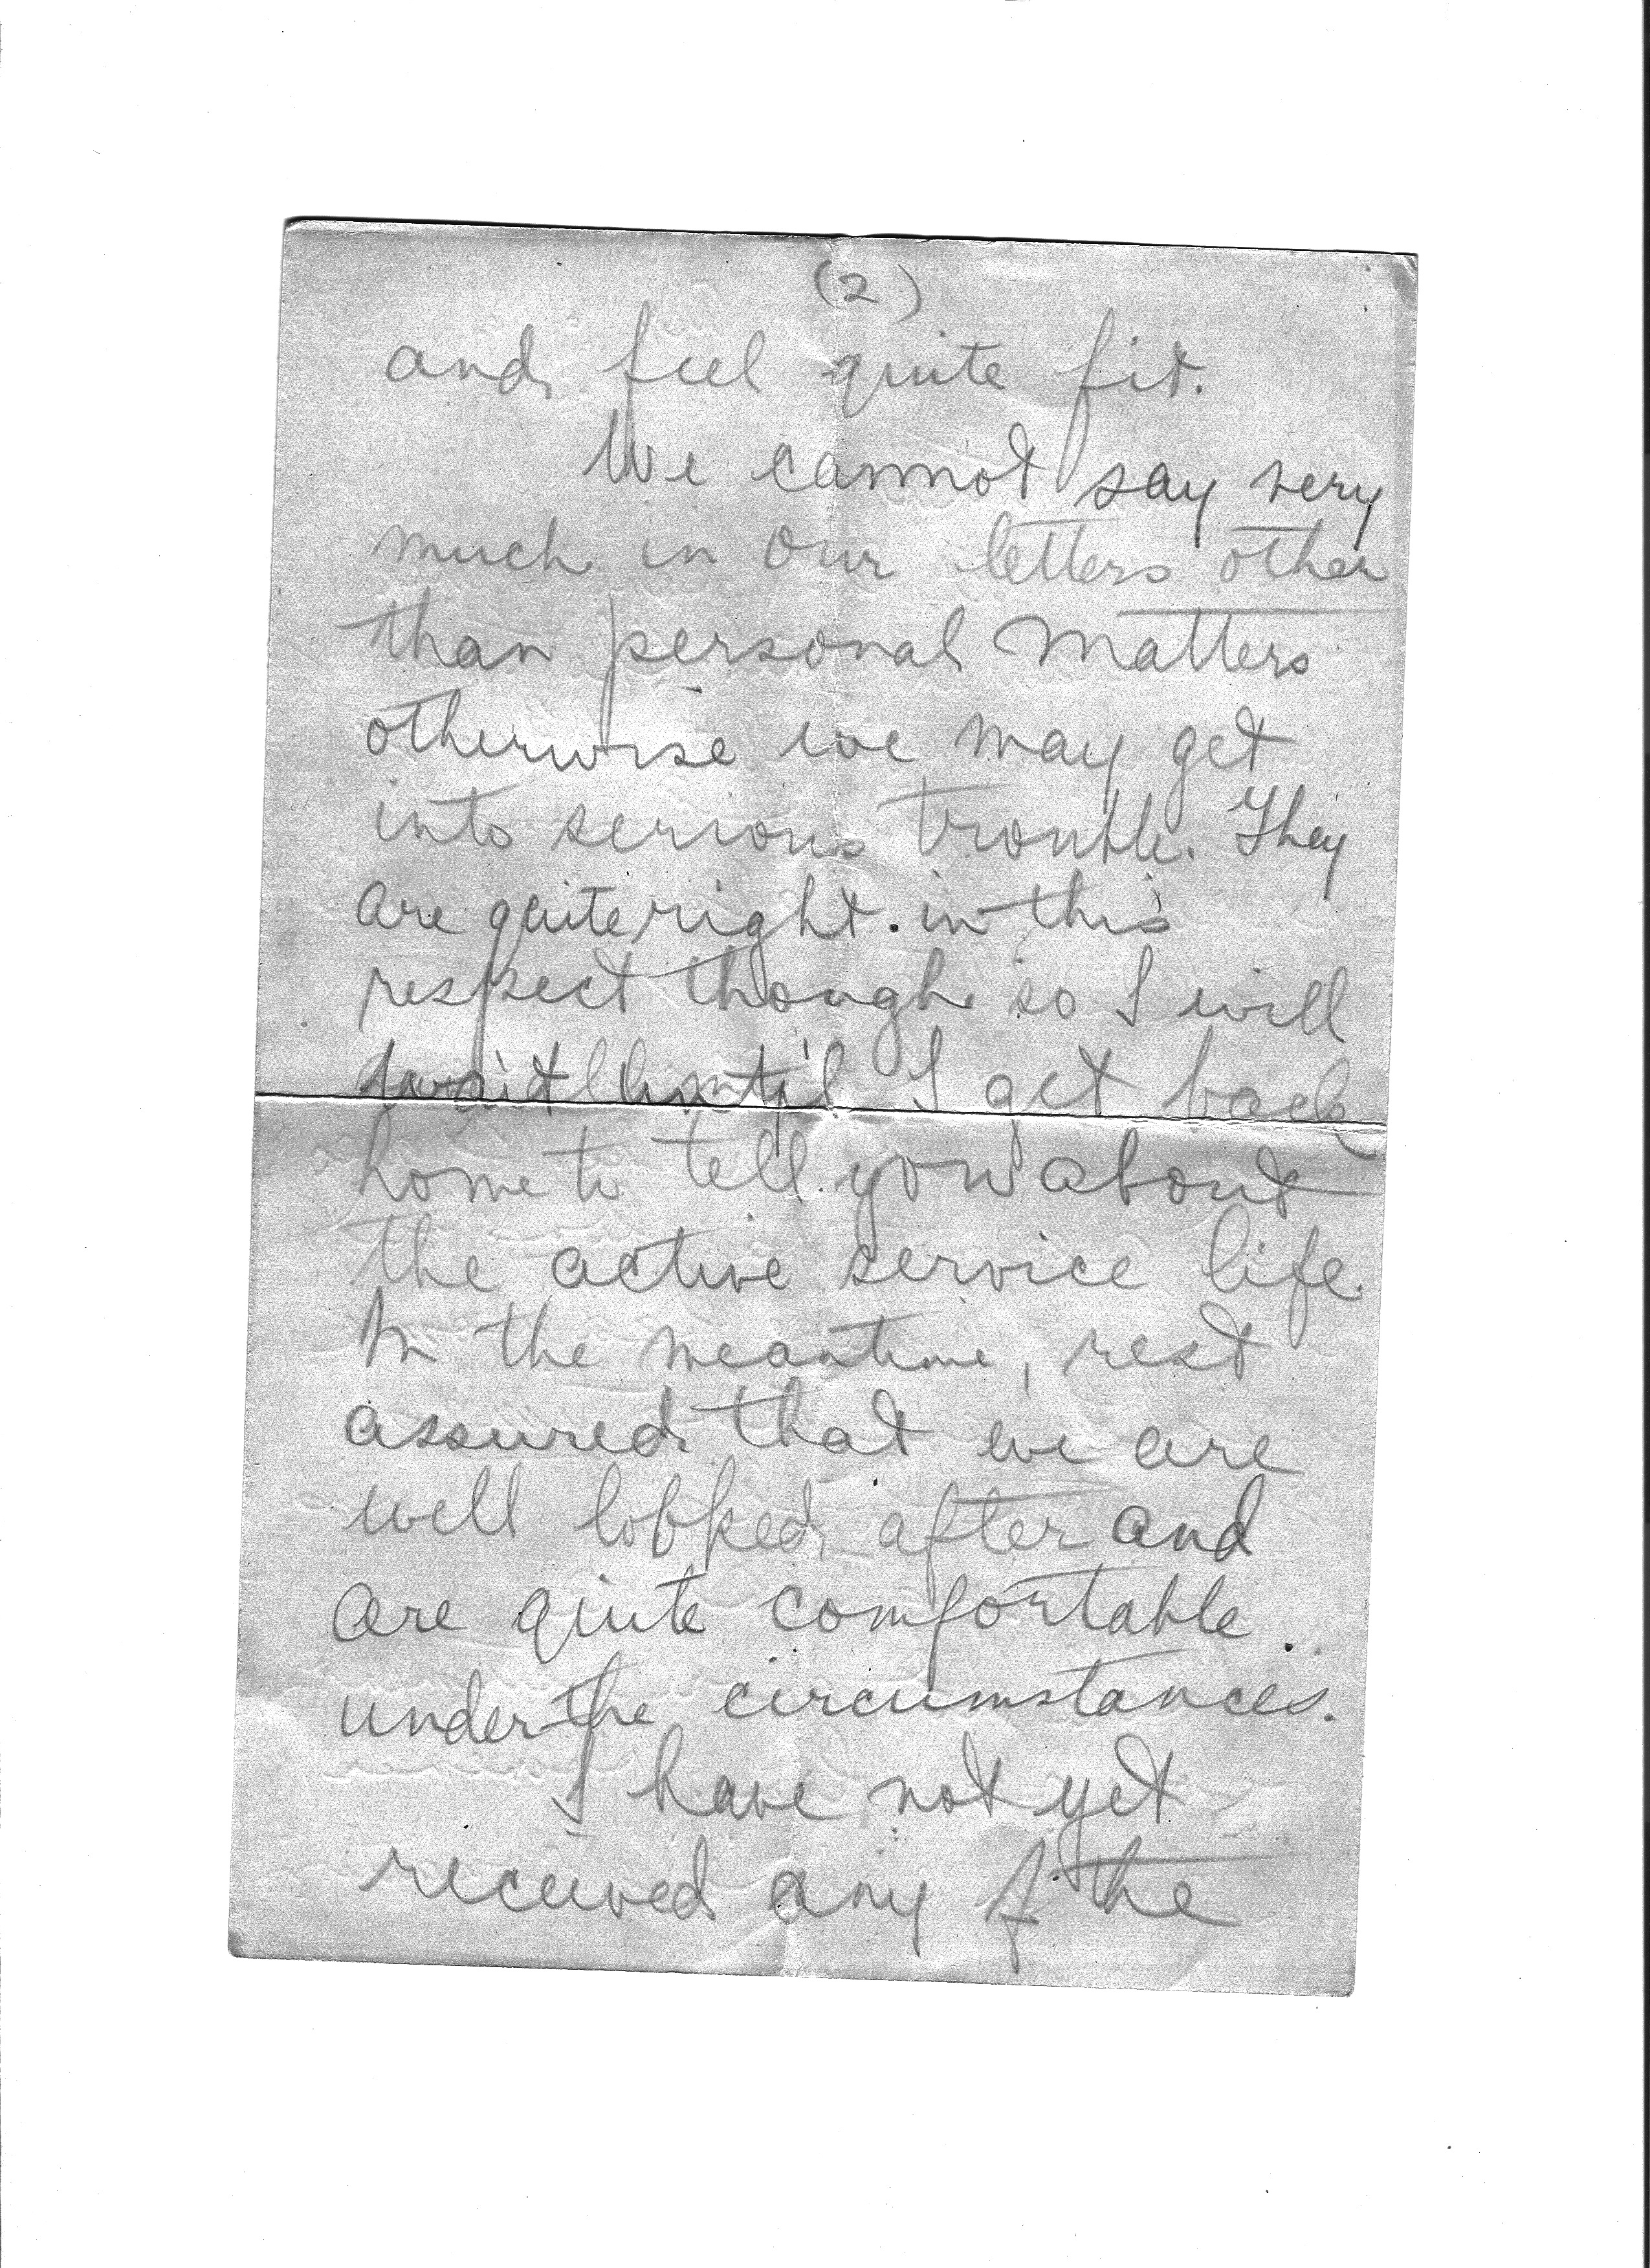 (2)
and feel quite fit.
We cannot say very
much in our letters other
than personal matters
otherwise we may get
into serious trouble. They
are quite right in this
respect though so I will
wait until I get back
home to tell you about
the active service life.
In the meantime, rest
assured that we are
well looked after and
are quite comfortable
under the circumstances.
I have not yet
received any of the